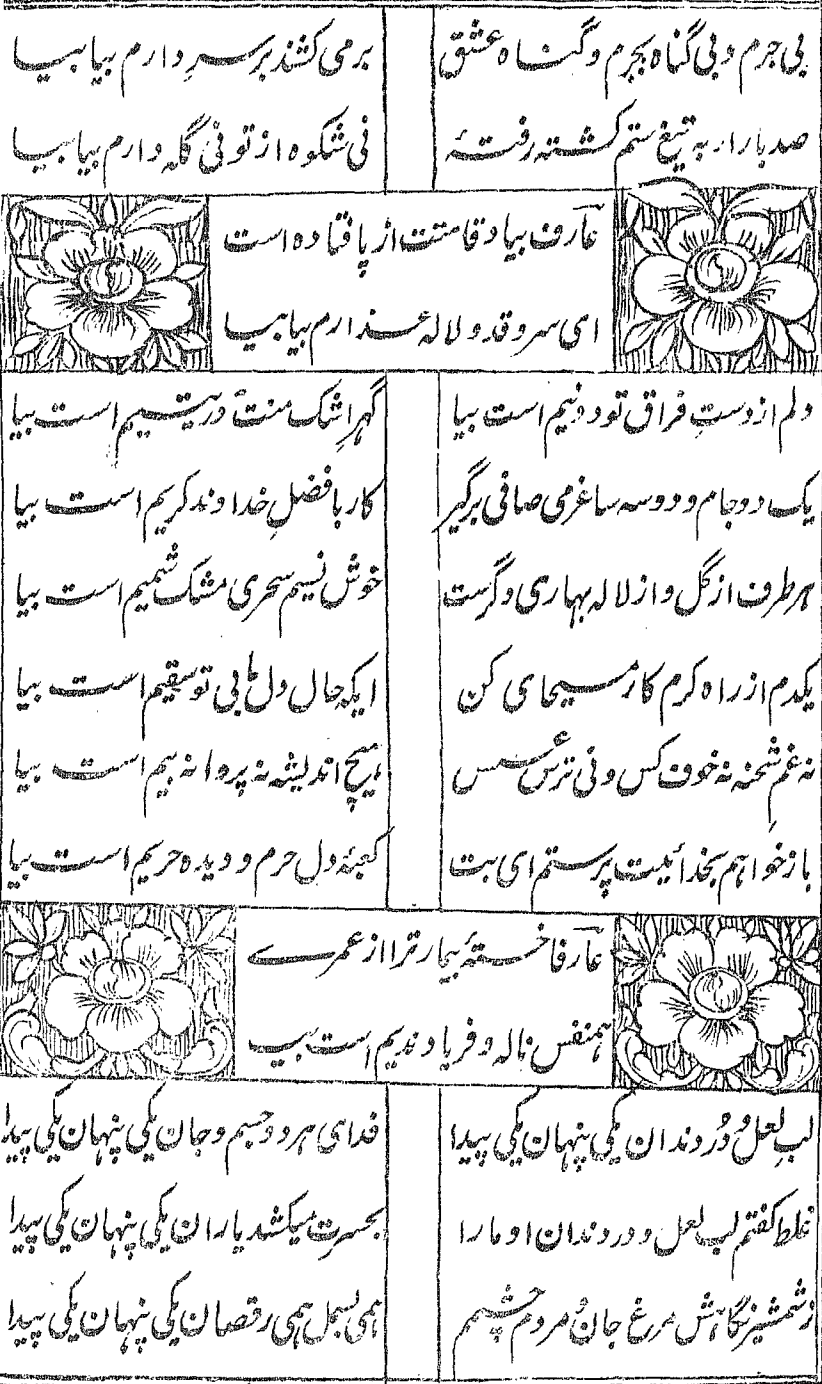 بی جرم و بی گناه بجرم و گناه عشق
بر می کشند بر سرِ دارم بیا بیا
صد بار ار به تیغ ستم کشته رفتهٔ
نی شکوه از تو نی گله دارم بیا بیا
عارف بیاد قامتت از پا فتاده است
ای سرو قد و لاله عذارم بیا بیا
دلم از دستِ فراق تو دو نیم است بیا
گهرِ اشک منت درِ یتیم است بیا
یک دو جام و دو سه ساغر می صافی برگیر
کار با فضلِ خداوند کریم است بیا
هر طرف از گل و از لاله بهاری دگرست
خوش نسیم سحری مشک شمیم است بیا
یکدم از راه کرم کار مسیحای کن
ایکه حال دل ما بی تو سقیم است بیا
نه غمِ شحنه نه خوف کس و نی ترس عسس
هیچ اندیشه نه پروا نه بیم است بیا
باز خواهم بخدائیت پرستم ای بت
کعبهٔ دل حرم و دیده حریم است بیا
عارفا خستهٔ بیمار ترا از عمرے
همنفس ناله و فریاد ندیم است بیا
لبِ لعل و دُر دندان یکی پنهان یکی پیدا
فدای هر دو جسم و جان یکی پنهان یکی پیدا
غلط گفتم لب لعل و در دندان او ما را
بحسرت میکشد یاران یکی پنهان یکی پیدا
ز شمشیر نگاهش مرغ جان و مردم چشمم
همی بسمل همی رقصان یکی پنهان یکی پیدا